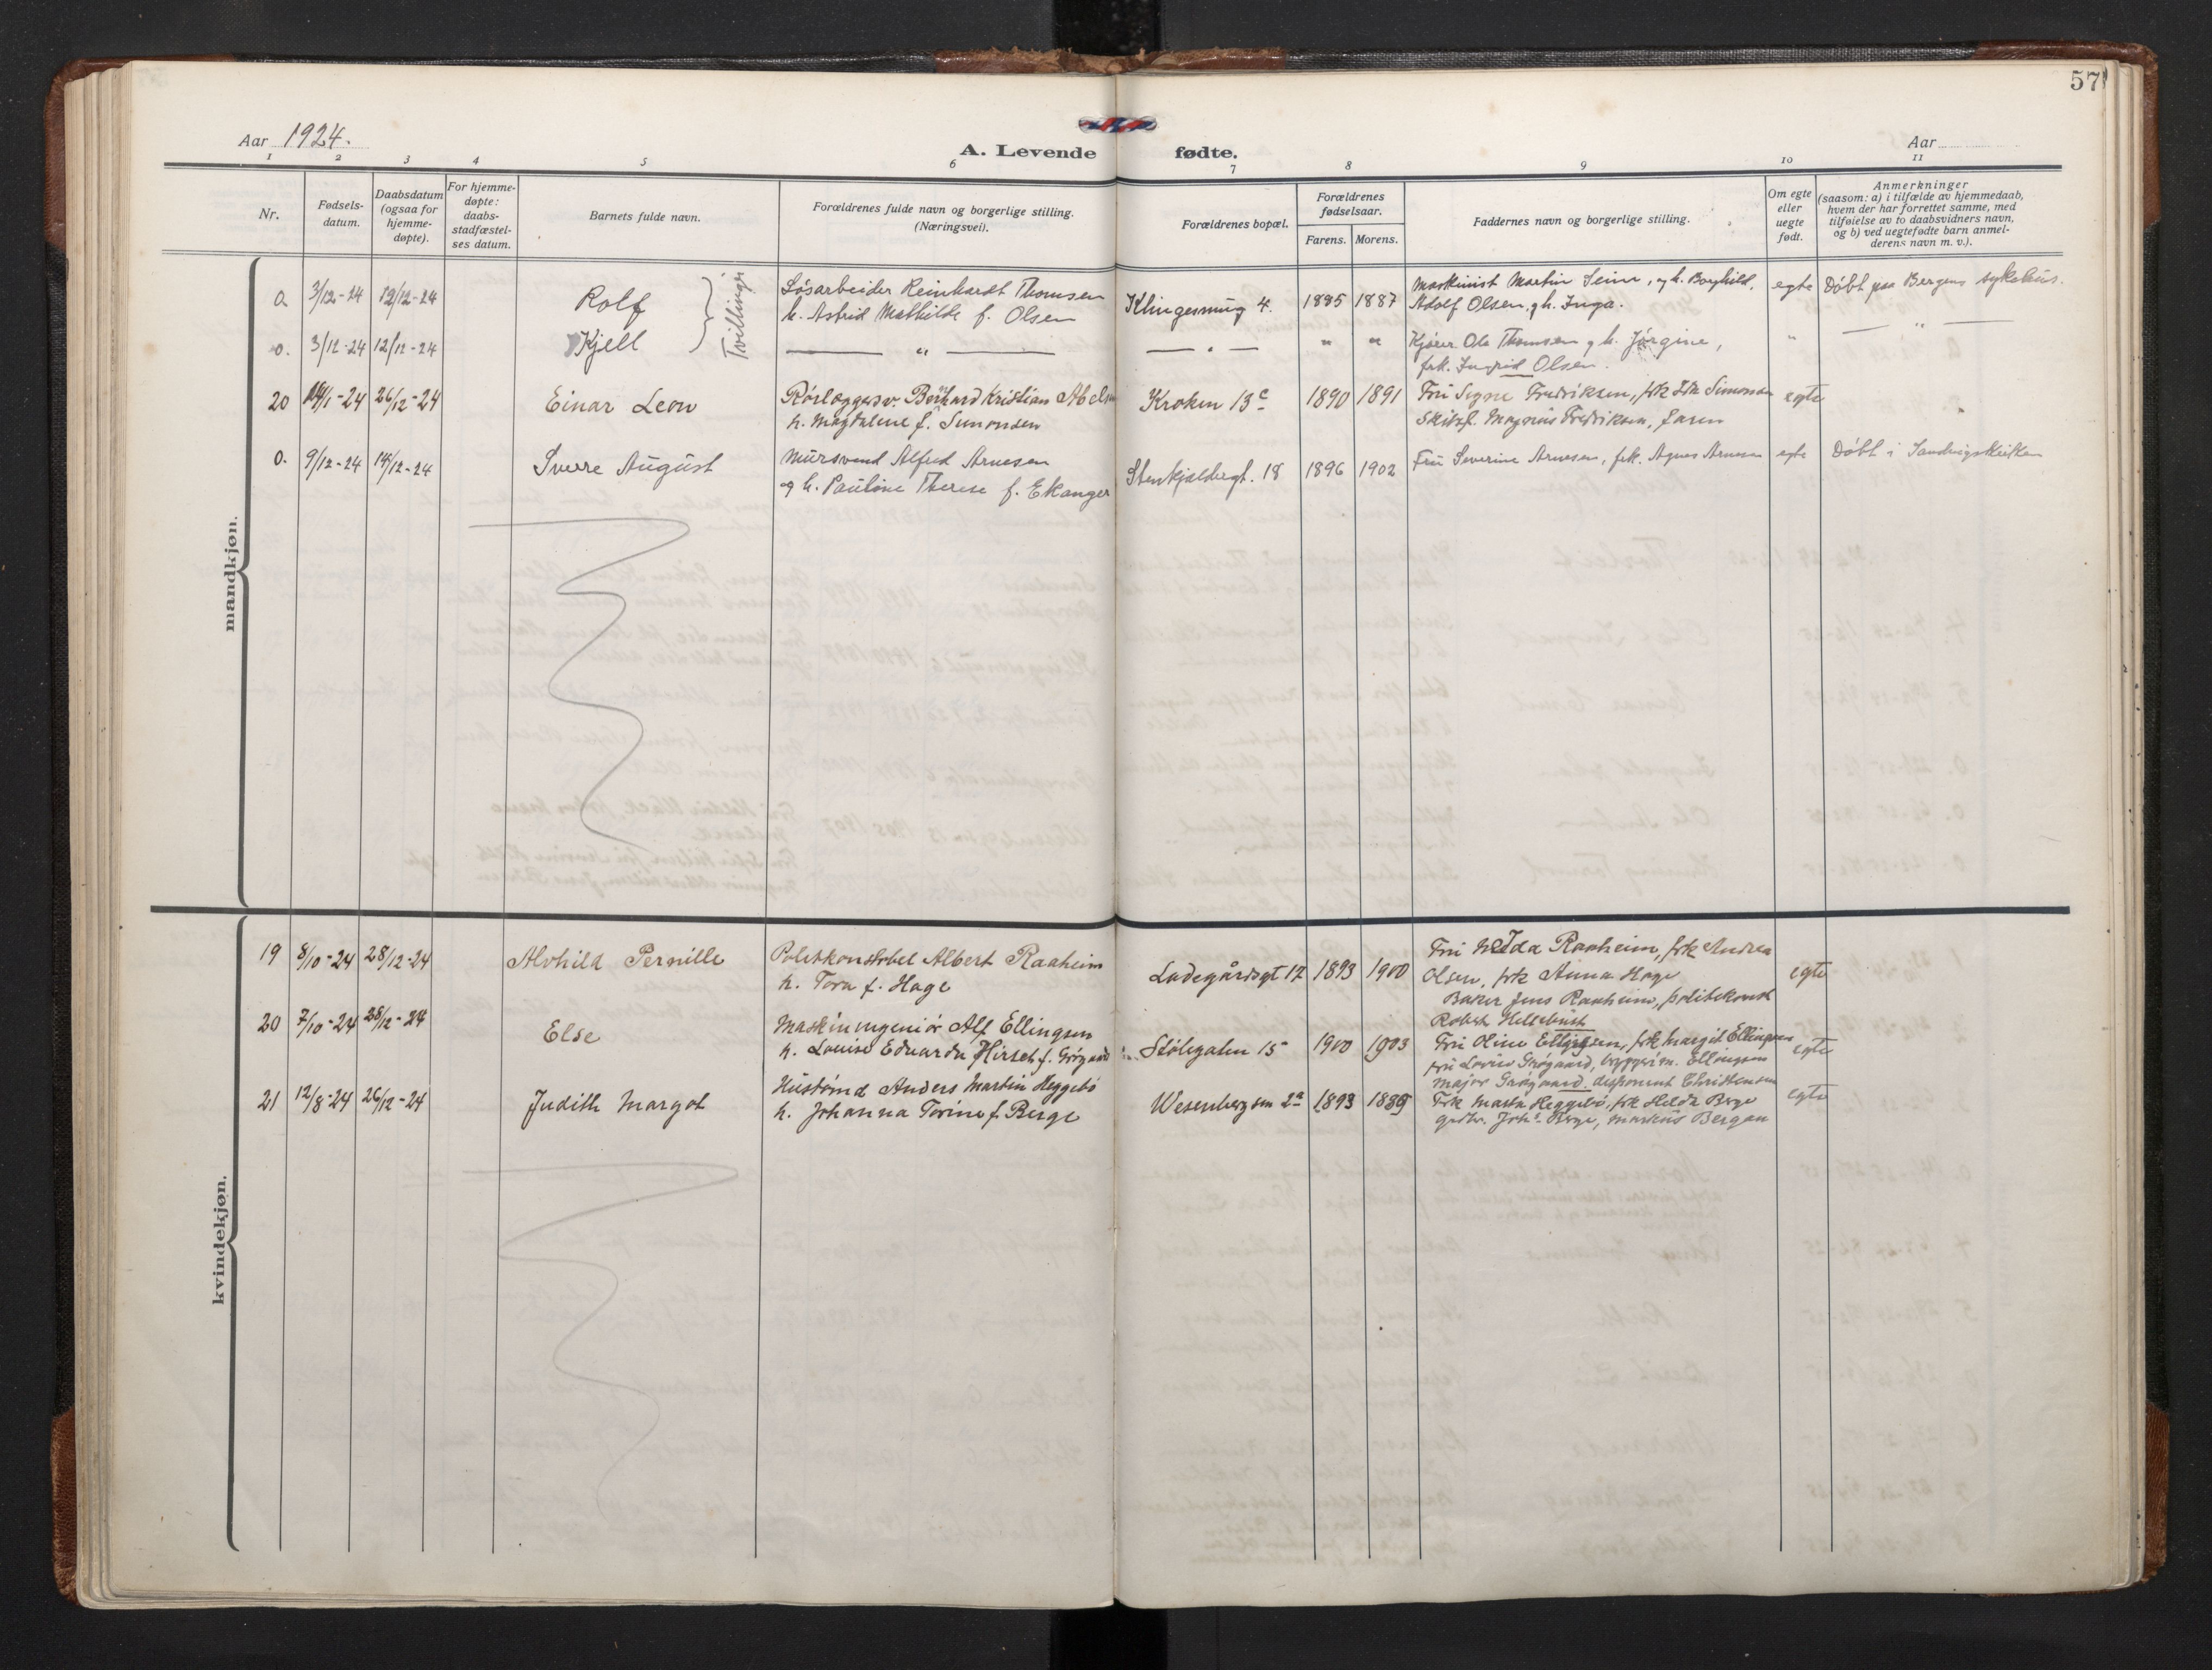 57
Aar 1924.
A. Levende fødte.
Aar
1 2 3 4 5 6 7 8 9 10 11
Nr.
Fødsels-
datum.
Daabsdatum
(ogsaa for
hjemme-
døpte).
For hjemme-
døpte:
daabs-
stadfæstel-
ses datum.
Barnets fulde navn.
Forældrenes fulde navn og borgerlige stilling.
(Næringsvei).
Forældrenes bopæl.
Forældrenes
fødselsaar.
Farens. Morens.
Faddernes navn og borgerlige stilling.
Om egte
eller
uegte
født.
Anmerkninger
(saasom: a) i tilfælde av hjemmedaab,
hvem der har forrettet samme, med
tilføielse av to daabsvidners navn,
og b) ved uegtefødte barn anmel-
derens navn m. v.).
mandkjøn.
0. 3/12-24 12/12-24 Rolf
Tvillinger
Løsarbeider Reinhardt Thomsen
h. Astrid Mathilde f. Olsen
Klingesmug 4. 1885 1887
Maskinist Martin Seim, og h. Borghild,
Adolf Olsen og h. Inga.
egte Døbt paa Bergens sykehus.
0. 3/12-24 12/12-24 Kjell
— " — — " — " "
Kjører Ole Thomsen og h. Jørgine,
frk. Ingrid Olsen.
" — " —
20 26/12-24 Einar Leon
Rørlæggersv. Bernhard Kristian Abelsen
h. Magdalene f. Simonsen
Kroken 13c 1890 1891
Fru Signe Fredriksen, frk Simonsen
Magnus Fredriksen, faren
egte
0. 9/12-24 14/12-24 Sverre August
Mursvend Alfred Arnesen
og h. Pauline Therese f. Ekanger
Stenkjeldergt. 18 1896 1902
Fru Severine Arnesen, frk. Agnes Arnesen
egte Døbt i Sandvigskirken
kvindekjøn.
19 8/10-24 28/12-24 Alvhild Pernille
Politikonstabel Albert Raaheim
h. Tora f. Hage
Ladegårdsgt 12 1893 1900
Fru Ida Raaheim, frk Andrea
Olsen, frk Anna Hage
Baker Jens Raaheim, politikonst
Robert Hellebust
egte
20 7/10-24 28/12-24 Else
Maskiningeniør Alf Ellingsen
h. Louise Edvarda Hirsch f. Grøgaard
Stølegaten 15 1900 1903
Fru Oline Ellingsen, frk Margit Ellingsen
fru Lovise Grøgaard, Ellingsen
major Grøgaard, disponent Christensen
egte
21 12/8-24 26/12-24 Judith Margot
Anders Martin Heggebø
h. Johanna Torine f. Berge
Wesenbergsm 2a 1893 1889
Frk Marta Heggebø, frk Helda Berge
Johs. Berge, Markus Bergan
egte